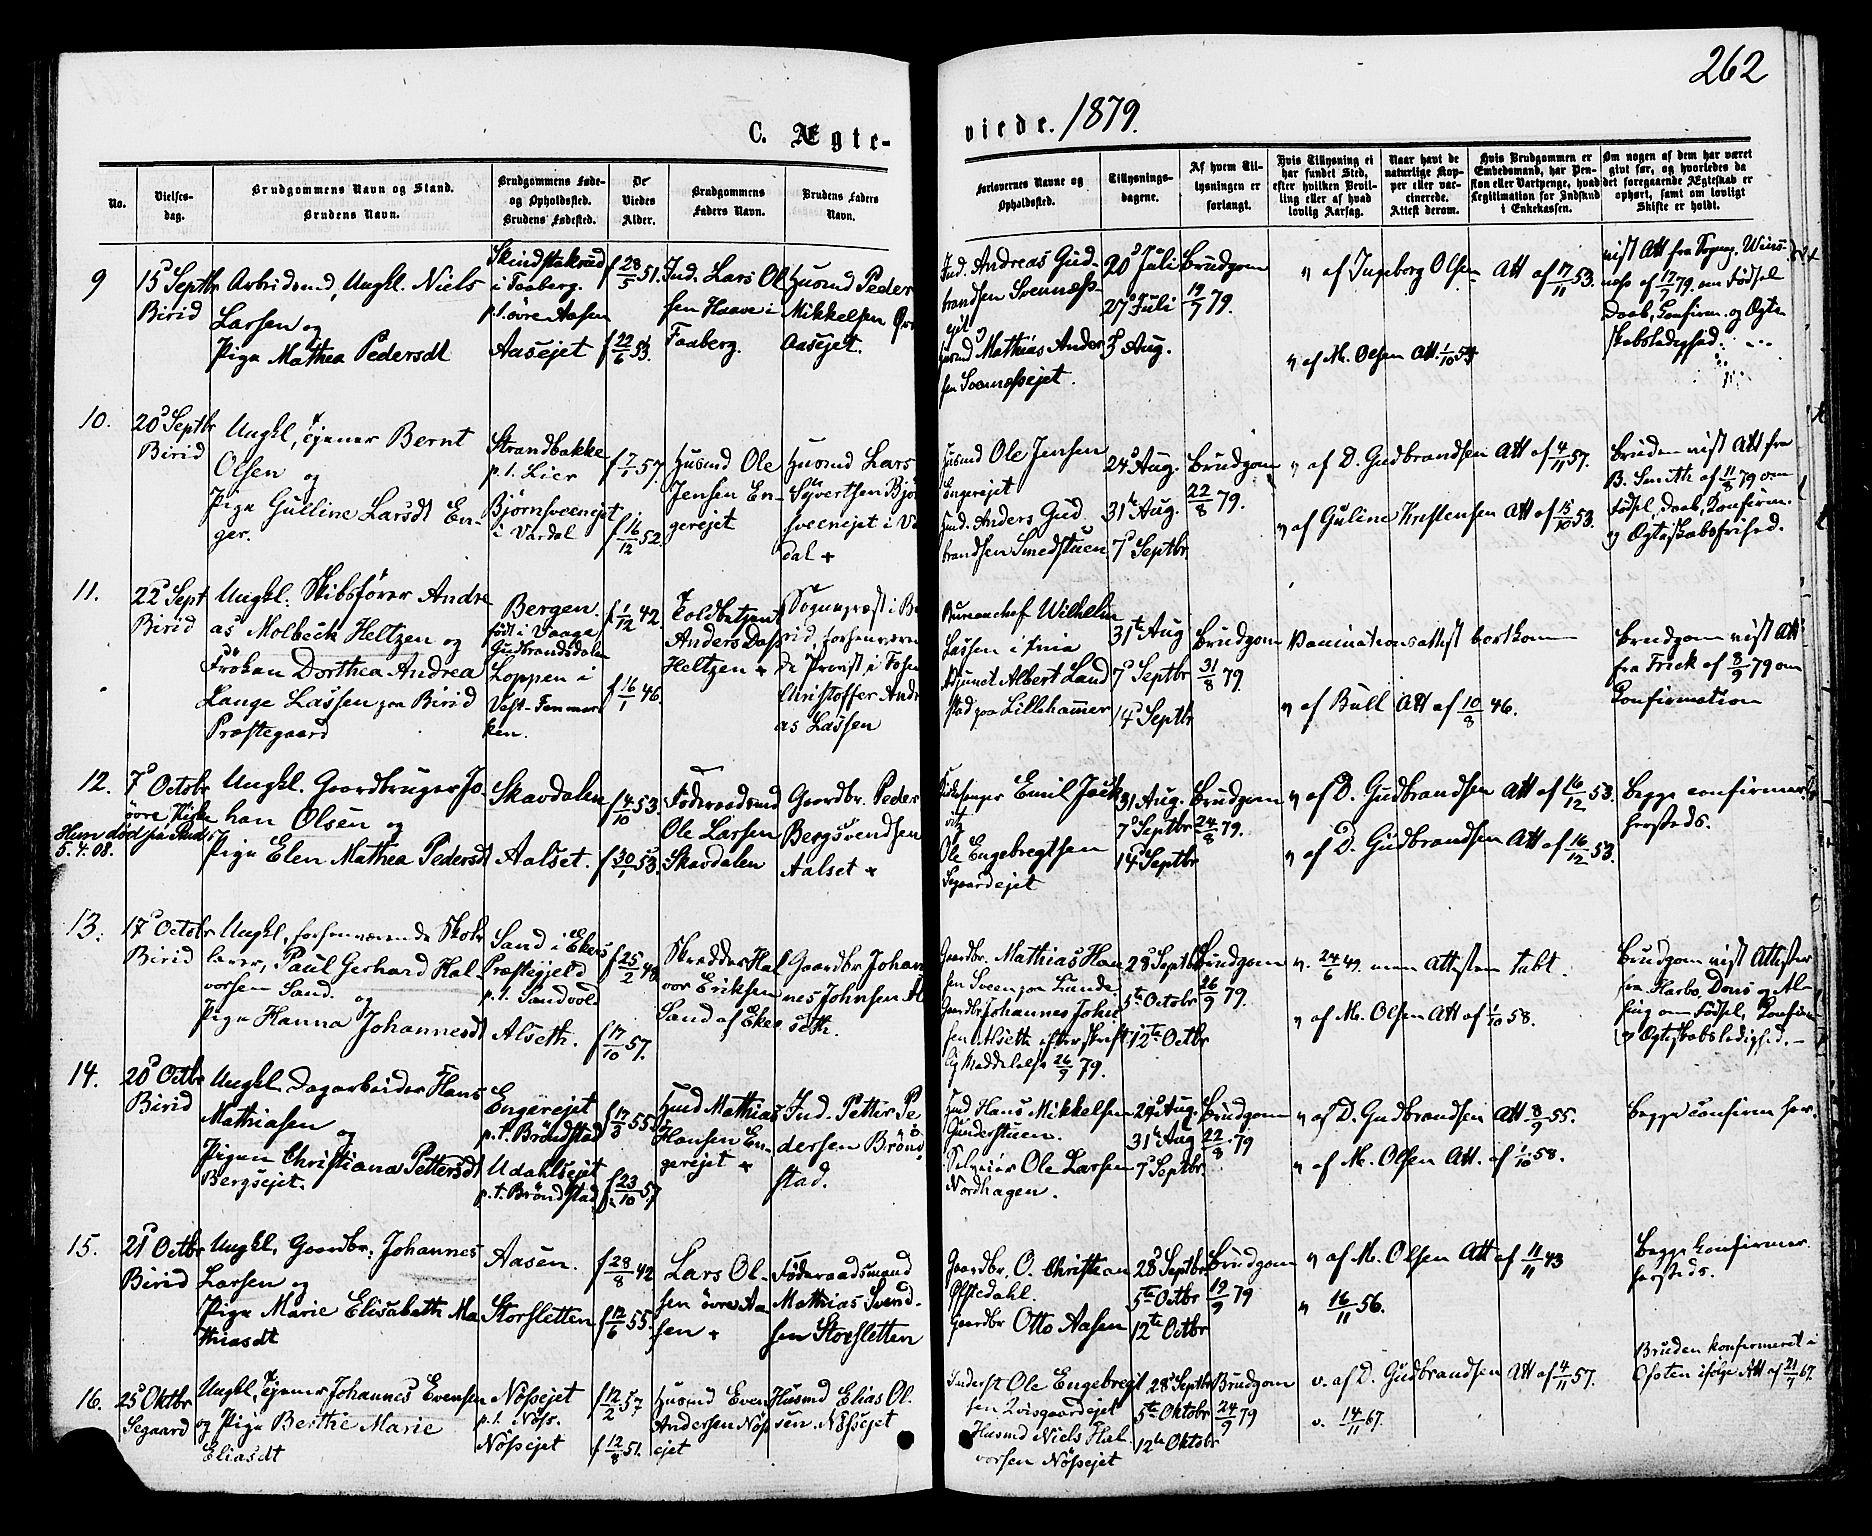 262
C. Ægte-
viede. 1879.
No.
Vielses-
dag.
Brudgommens Navn og Stand.
Brudens Navn.
Brudgommens Føde-
og Opholdssted.
Brudens Fødested.
De
Viedes
Alder.
Brudgommens
Faders Navn.
Brudens Faders
Navn.
Forlovernes Navne og
Opholdssted.
Tillysnings-
dagene.
Af hvem Til-
lysningen er
forlangt.
Hvis Tillysning ei
har fundet Sted,
efter hvilken Bevil-
ling eller af hvad
lovlig Aarsag.
Naar havt de
naturlige Kop-
per eller vac-
cinerede.
Attest derom.
Hvis Brudgommen er
Embedsmand, har Pen-
sion eller Vartpenge, hvad
Legitimation for Indskud
i Enkekassen.
Om nogen af dem har været
givt før, og hvorledes da
det foregaaende Ægteskab er
ophørt, samt om lovligt
Skifte er holdt.
9
15 Septbr
Birid
Arbeidsmd, Ungkl. Niels
Larsen og
Pige Mathea Pedersdt
i Faaberg.
p.t. øvre Aasen
Aasejet
f 28/5 51.
f 22/6 53.
Ind. Lars Ol
sen Haave i
Faaberg.
Husmd Peder
Mikkelsen
Aasejet.
Ind. Andreas Gud-
brandsen Svennæs-
ejet
Husmd Mathias Ander
sen Svennæsejet.
20 Juli
27 Juli
3 Aug.
Brudgom
19/7 79.
v af Ingeborg Olsen Att af 17/11 53.
v af M. Olsen Att. 1/10 54
af 17/7 79. om Fødsel
Daab, Confirm. og Ægte
skabsledighed.
10.
20 Septbr
Birid
Ungkl, Tjener Bernt
Olsen og
Pige Gulline Larsdt En-
ger.
Strandbakke
p.t. Lier
Bjørnsveenejet
i Vardal
f 7/1 57.
f 16/12 52.
Husmd Ole
Jensen En-
gerejet
Husmd Lars
Syvertsen Bjør
sveenejet i Va
dal +
Husmd Ole Jensen
Engerejet
Ind. Anders Gud
brandsen Smedstuen
24 Aug.
31te Aug.
7 Septbr
Brudgom
22/8 79.
v af D. Gudbrandsen Att af 4/11 57.
v af Guline Kristensen Att af 15/10 53.
Bruden vist Att fra
B. Smith af 11/8 79 om
Fødsel, Daab, Konfirm.
og Ægteskabsfrihed.
11.
22 Sept
Birid
Ungkl. Skibsfører Andre
as Molbech Heltzen og
Frøken Dorthea Andrea
Lange Lassen paa Birid
Præstegaard
Bergen.
født i Vaage
Gudbrandsdalen
Loppen i
Vest-Finmar
ken.
f 1/12 42
f 16/1 46.
Toldbetjent
Anders Dass
Heltzen +
Sognepræst i Bi
rid, forhenværen
de Provst i Fosen
Christoffer Andre
as Lassen
Bureauchef Wilhelm
Lassen i Xnia
Adjunct Albert Land
stad paa Lillehammer
31te Aug
7 Septbr
14 Septbr
Brudgom
31/8 79.
Vaccinationsattest bortkom
v af Bull Att af 10/8 46.
Brudgom vist Att
fra Frick af 8/9 79 om
Confirmation
12.
7 Octobr
øvre Kirke
5.4.08.
Ungkl. Gaardbruger Jo
han Olsen og
Pige Elen Mathea Pedersdt
Skavdalen
Aalset.
f 4/10 53.
f 30/1 53.
Føderaadsmd
Ole Larsen
Skavdalen
Gaardbr. Peder
Bergsvendsen
Aalset +
Kirkesanger Emil Jack
witz
Ole Engebregtsen
Segaardejet
31 Aug.
7 Septbr
14 Septbr
Brudgom
24/8 79.
v af D. Gudbrandsen Att af 16/12 53.
v af D. Gudbrandsen Att af 16/12 53.
Begge confirmer
hersteds.
13.
17 Octobr
Birid
Ungkl, forhenværende Skole
lærer, Paul Gerhard Hal
vorsen Sand. og
Pige Hanna Johannesdt
Sand i Ekers
Præstegjeld
p.t. Sandvold
Alseth.
f 25/2 48
f 17/10 57.
Skrædder Hal
vor Eriksen
Sand af Eker
Gaardbr Johan
nes Johnsen Al
seth.
Gaardbr. Mathias Han
sen Sveen paa Lunde
Gaardbr Johannes John
sen Alseth efter skrift
lig Meddelelse 26/9 79.
28 Septbr
5te Octobr
12te Octbr
Brudgom
26/9 79.
v. 24/6 49. men Attesten tabt.
v af M. Olsen Att af 1/10 58.
Brudgom vist Attester
fra Harbo, Dons og Al-
sing om Fødsel, Konfirm
og Ægteskabsledighed.
14.
20 Octbr
Birid
Ungkl. Dagarbeider Hans
Mathiasen og
Pigen Christiana Pettersdt
Bergsejet.
Engerejet
p.t. Brøndstad
Udahlsejet
p.t. Brøndstad
f 17/3 55.
f 23/10 57
Husmd Mathias
Hansen En-
gerejet +
Ind. Petter Pe
dersen Brønd
stad.
Ind Hans Mikkelsen
Gunderstuen.
Selveier Ole Larsen
Nordhagen.
24 Aug.
31te Aug
7 Septbr.
Brudgom
22/8 79
v af D. Gudbrandsen Att 8/9 55.
v af M. Olsen Att. af 1/10 58.
Begge confirm her.
15.
21 Octbr
Birid
Ungkl. Gaardbr. Johannes
Larsen og
Pige Marie Elisabeth Ma
thiasdt
Aasen.
Storsletten
f 28/8 42
f 12/6 55.
Lars Ol-
sen øvre Aa
sen +
Føderaadsmand
Mathias Svend-
sen Storsletten
Gaardbr. O. Christian
Ofstedahl.
Gaardbr Otto Aasen
28 Septbr
5te Octbr
12te Octbr
Brudgom
19/9 79
v af M. Olsen Att af 11/11 43
v 16/11 56.
Begge konfirmer.
hersteds.
16.
25 Oktbr
Segaard
Ungkl, Tjener Johannes Evensen
og Pige Berthe Marie
Eliasdt
Nøssejet
p.t. Nøss.
Nøssejet
f 12/2 57
f 12/8 51.
Husmd Even
Andersen Nøss
ejet
Husmd Elias Ol.
sen Nøssejet
Inderst Ole Engebregt
sen Qvisgaardejet
Husmd Niels Hal.
vorsen Nøssejet
28 Septbr
5te Oktobr
12te Oktobr
Brudgom
24/9 79
v. af D. Gudbrandsen Att af 4/11 57.
v. 14/11 67.
Bruden konfirmeret i
Ofoten ifølge Att af 21/7 67.